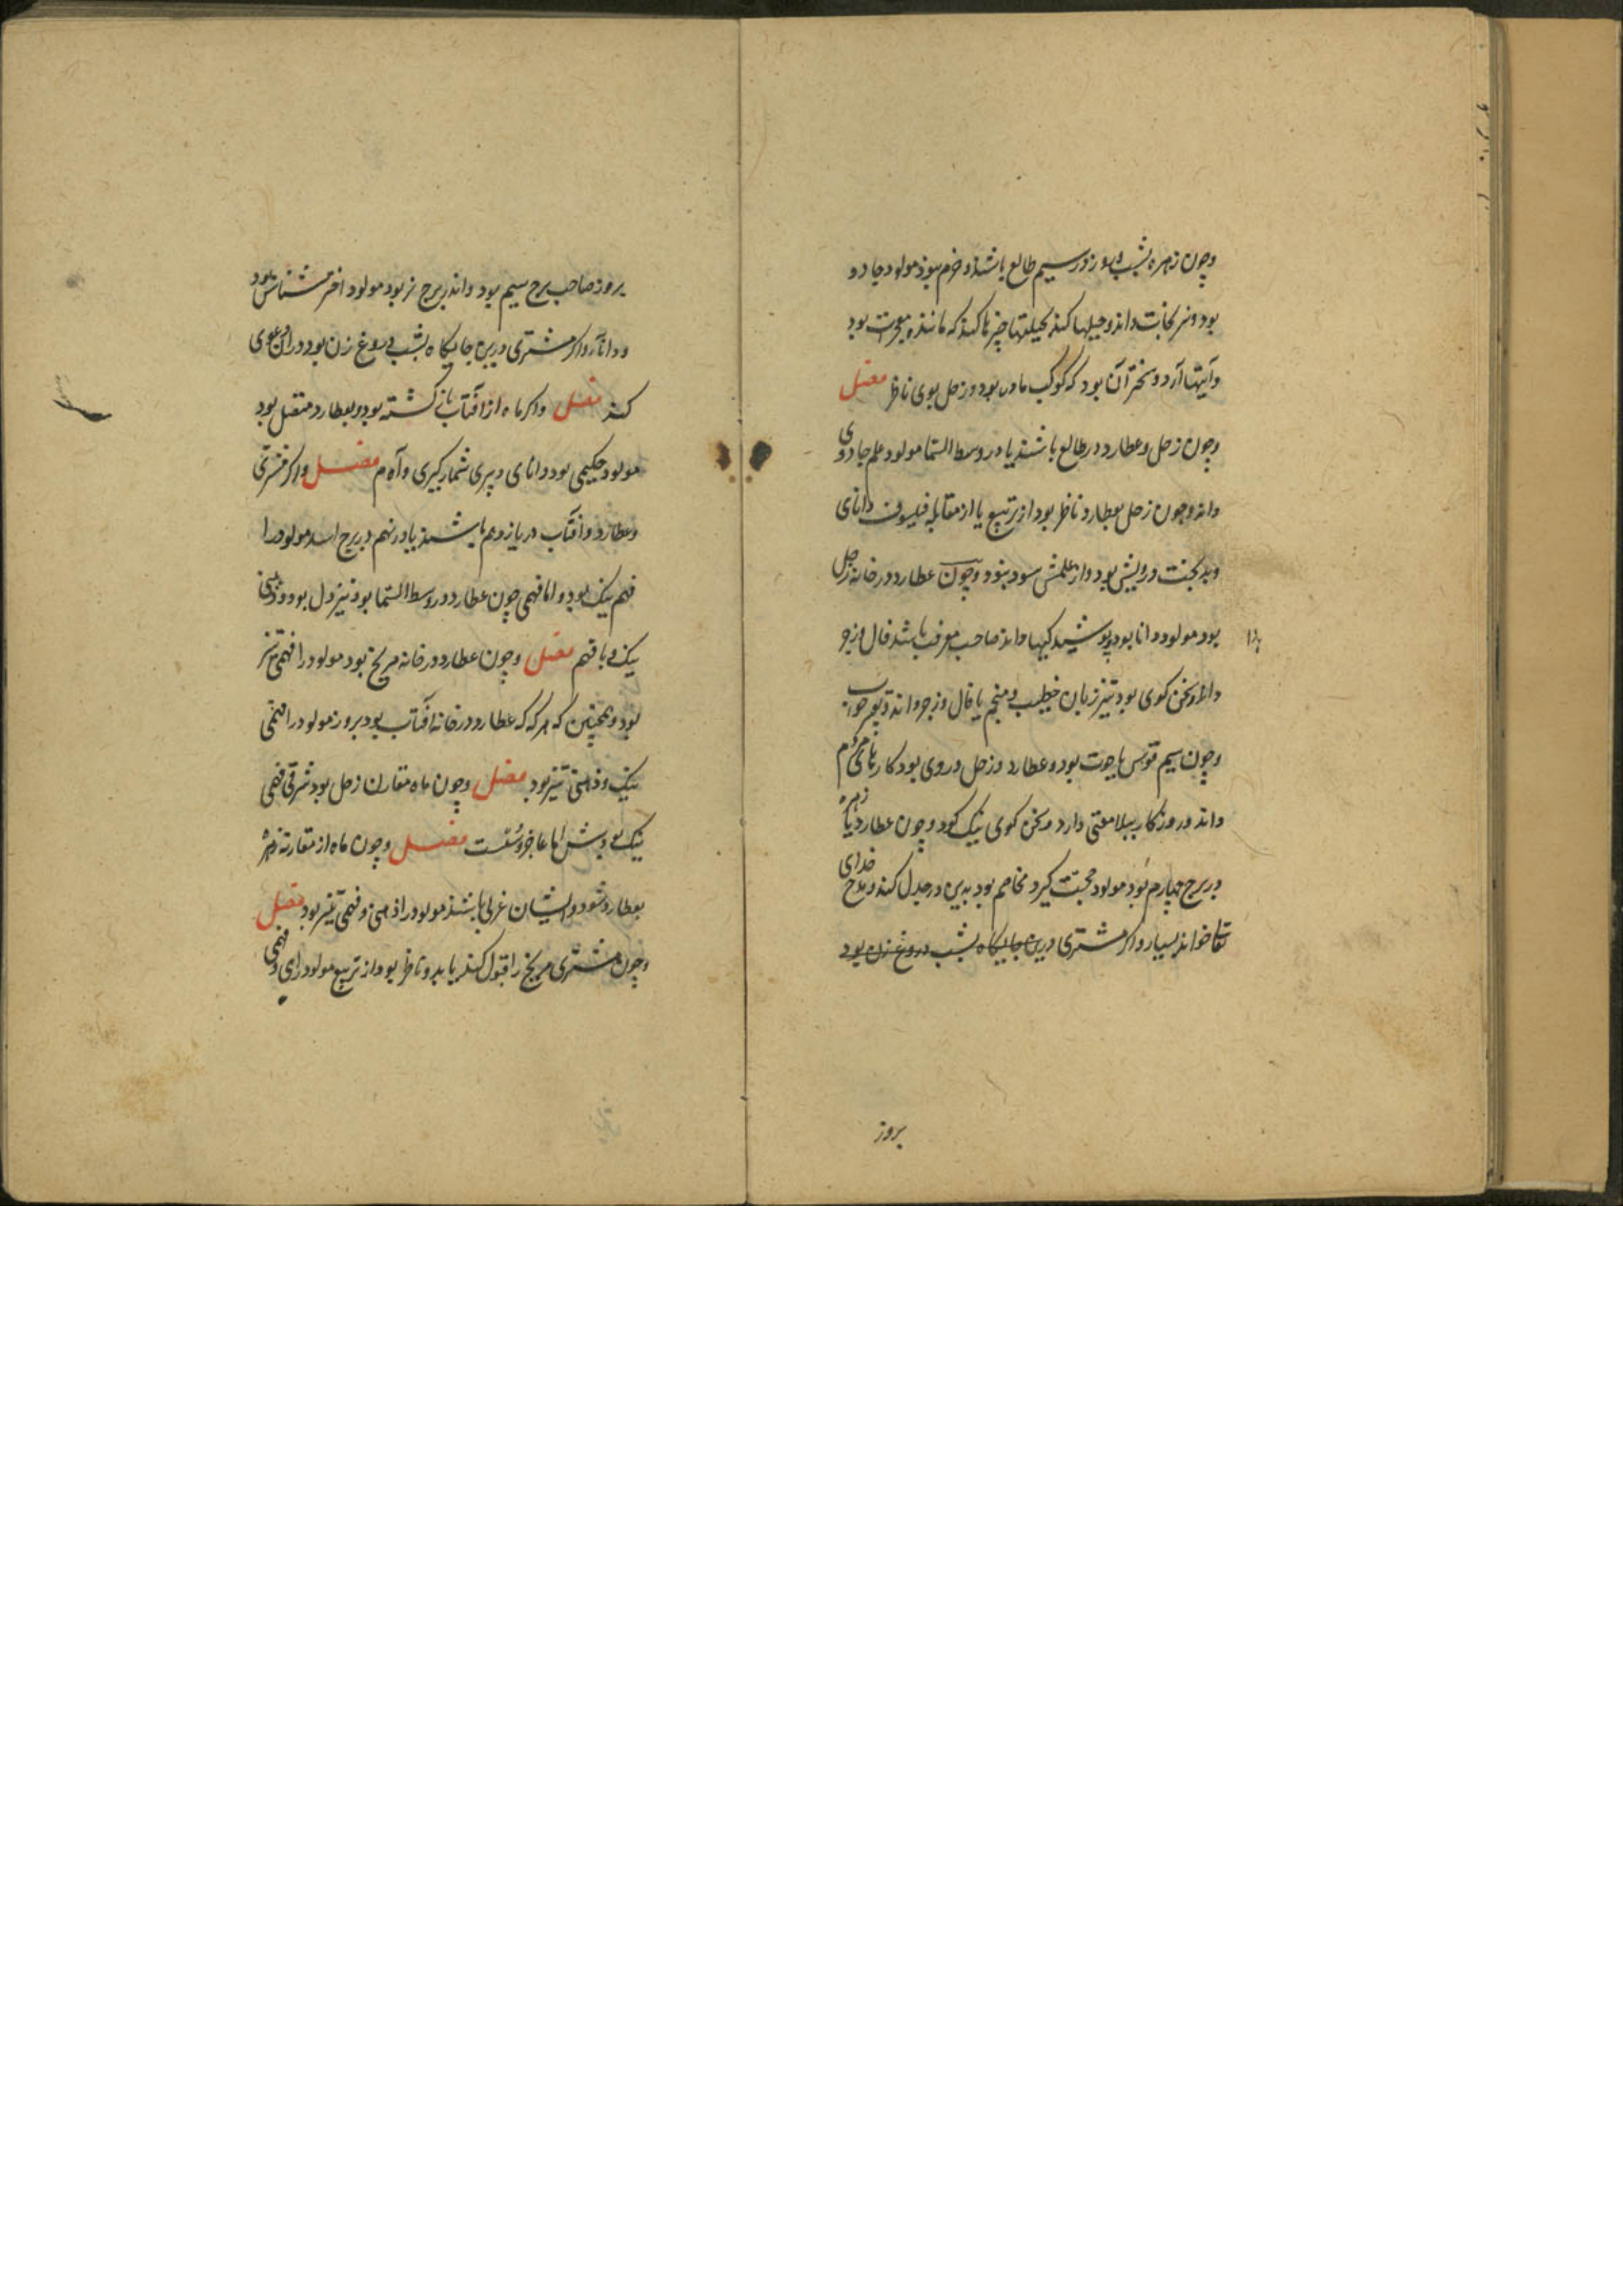 وچون زهره بشب وبروز در سیم طالع باشند و خرم بود مولود جادو
بود ونیرنجات داند و حیلها کند بحیلتها چیزها کند که مانند معجزت بود
وآیتها آرد و سختر آن بود که کوکب ماده بود و زحل بوی ناظر فصل
وچون زحل وعطارد در طالع باشند یا در وسط السما مولود علم جادوی
داند وچون زحل بعطارد ناظر بود از تربیع یا از مقابله فیلسوف دانای
وبدبخت درویش بود واز علمش سود نبود وچون عطارد در خانه زحل
بود مولود دانا بود پوشیدکیها داند صاحب معرفت باشد فال وزجر
داند وسخن کوی بود تیز زبان خطیب منجم یا فال وزجر داند
وچون سیم قوس یا حوت بود و عطارد وزحل دروی بود کارهای
داند و روزکار بسلامتی دارد وسخن کوی نیک بود وچون عطارد یا زهره
در برج چهارم بود مولود محبت کیرد مخاصم بود بدین در جدل کند ومدح خدای
تعا خواند بسیار واکر مشتری درین جایکاه بشب دروغ زن بود
بروز
بروز صاحب برج سیم بود واندر برج نر بود مولود اخترشناس بود
ودانا واکر مشتری درین جایکاه بشب دروغ زن بود ودران دعوی
کند فصل واکر ماه از آفتاب بازکشته بود وبعطارد متصل بود
مولود حکیمی بود دانای دبیری شمارکیری فصل واکر مشتری
وعطارد وآفتاب در یازدهم باشند یا در نهم در برج اسد مولود را
فهم نیک بود واما فهمی چون عطارد در وسط السما بود تیز دل بود
نیک وبا فهم فصل وچون عطارد در خانه مریخ بود مولود را فهمی تیز
بود وهمچنین که هرکه که عطارد در خانه آفتاب بود بروز مولود را فهمی
نیک وذهنی تیز بود فصل وچون ماه مقارن زحل بود شرقی فهمی
نیک بودش اما عاجز وسست فصل وچون ماه از مقارنه زهره
بعطارد شود وایشان غربی باشند مولود را ذهنی وفهمی تیز بود فصل
وچون مشتری مریخ را قبول کند یا بدو ناظر بود از تربیع مولود را رای وفهمی